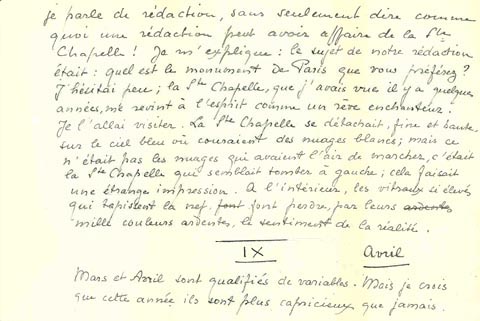 je parle de rédaction, sans seulement dire comme
quoi une rédaction peut avoir affaire de la Ste
Chapelle ! Je m'explique : le sujet de notre rédaction
était : quel est le monument de Paris que vous préférez ?
J'hésitai peu ; la Ste Chapelle, que j'avais vue il y a quelques
années, me revint à l'esprit comme un rêve enchanteur.
Je l'allai visiter. La Ste Chapelle se détachait, fine et haute,
sur le ciel bleu où couraient des nuages blancs ; mais ce
n'était pas les nuages qui avaient l'air de marcher, c'était
la Ste Chapelle qui semblait tomber à gauche ; cela faisait
une étrange impression. A l'intérieur, les vitraux si élevés
qui tapissent la nef, font font perdre, par leurs ardentes
mille couleurs ardentes, le sentiment de la réalité.
IX Avril
Mars et Avril sont qualifiés de variables. Mais je crois
que cette année ils sont plus capricieux que jamais.